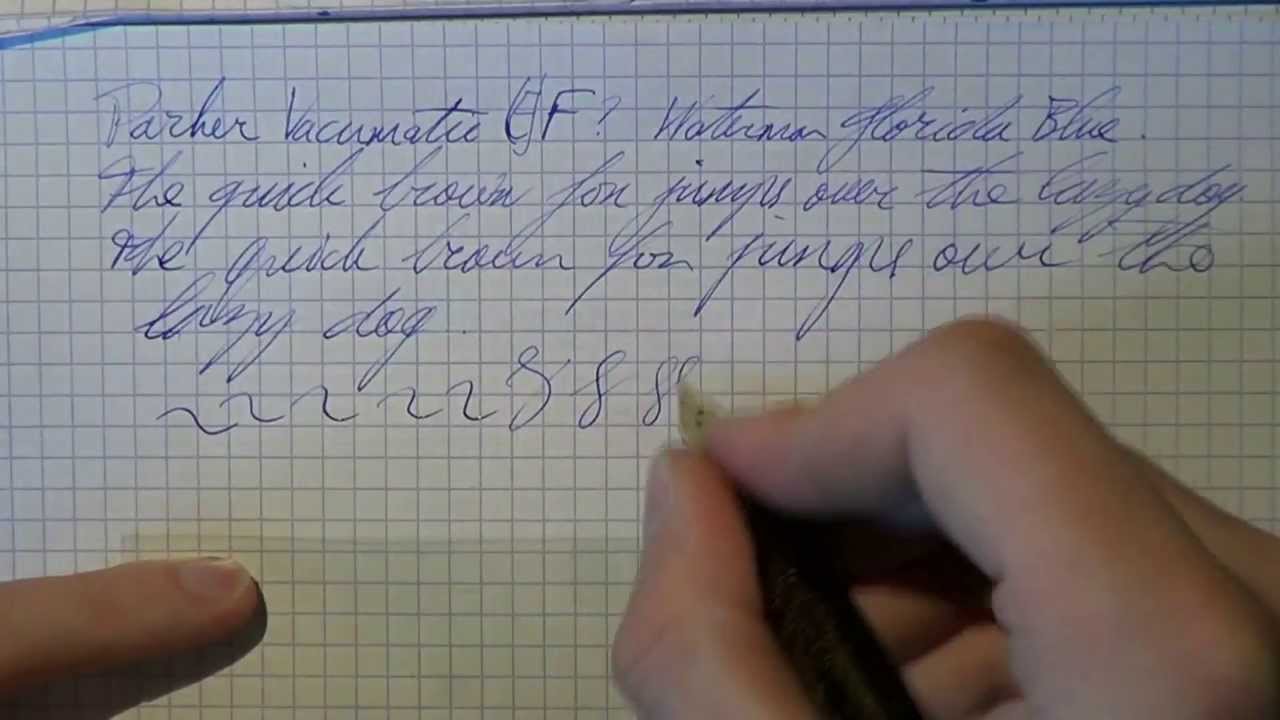 Parker Vacumatic (E)F? Waterman Florida Blue.
The quick brown fox jumps over the lazy dog.
The quick brown fox jumps over the
lazy dog.
2 2 2 2 2 8 8 8 8